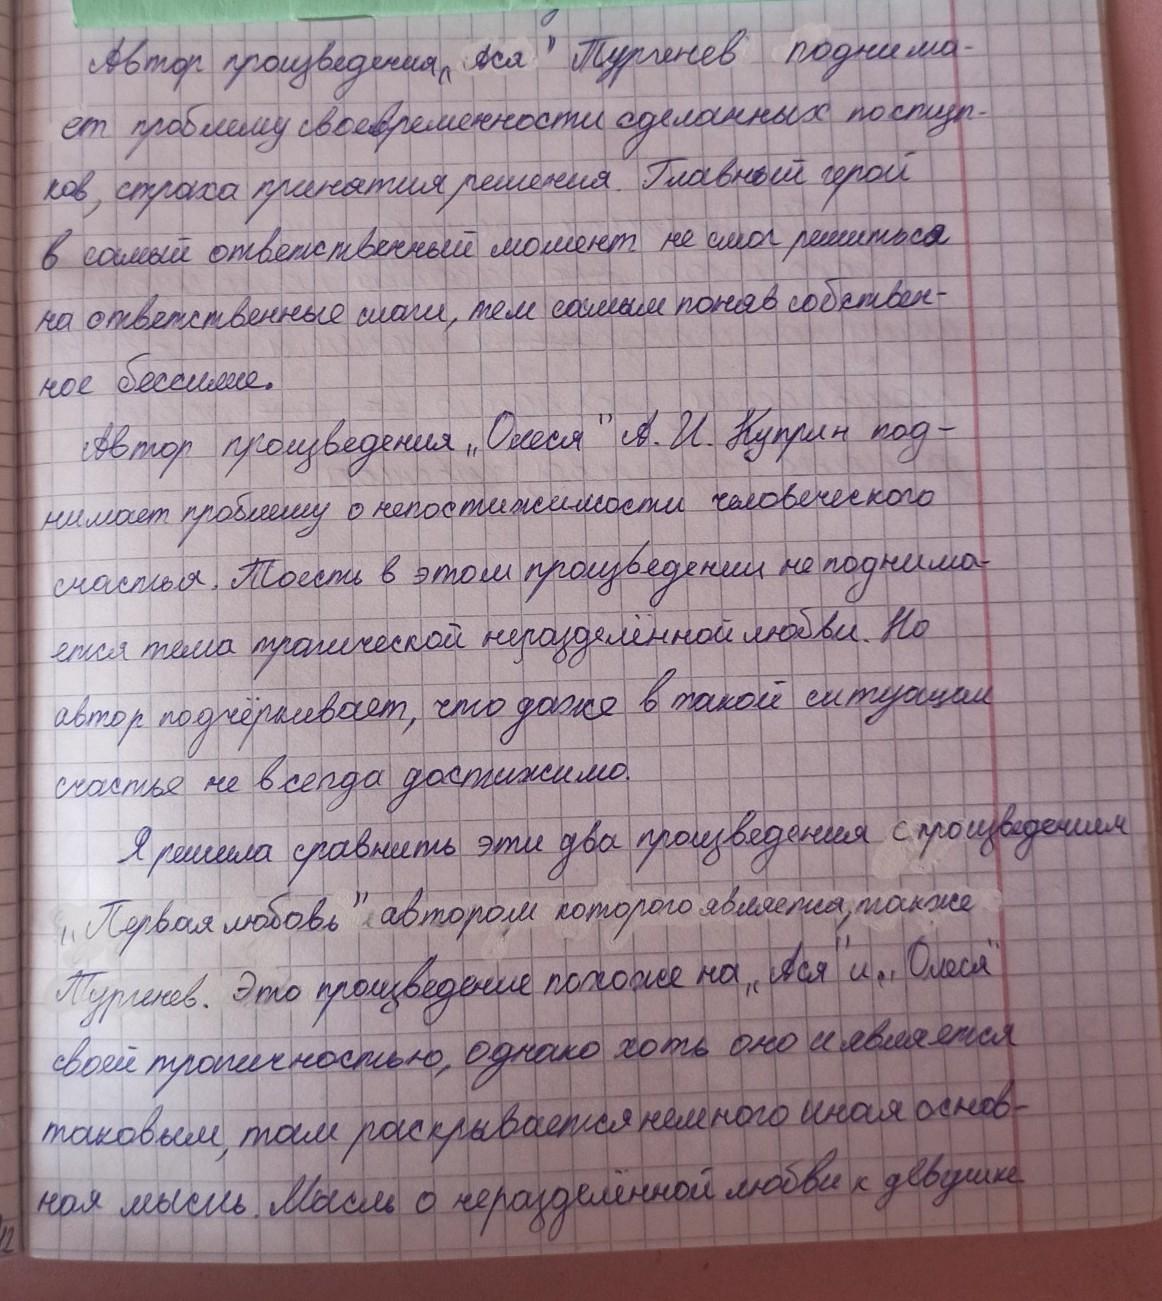 Автор произведения „Ася" Тургенев поднима-
ет проблему своевременности сделанных поступ-
ков, страха принятия решения. Главный герой
в самый ответственный момент не смог решиться
на ответственные шаги, тем самым поняв собствен-
ное бессилие.
Автор произведения „Олеся" А. И. Куприн под-
нимает проблему о непостижимости человеческого
счастья. Тоесть в этом произведении не поднима-
ется тема трагической неразделённой любви. Но
автор подчёркивает, что даже в такой ситуации
счастье не всегда достижимо.
Я решила сравнить эти два произведения с произведением
„Первая любовь" автором которого является, также
Тургенев. Это произведение похоже на „Ася" и „Олеся"
своей трагичностью, однако хоть оно и является
таковым, там раскрывается немного иная основ-
ная мысль. Мысль о неразделённой любви к девушке
12